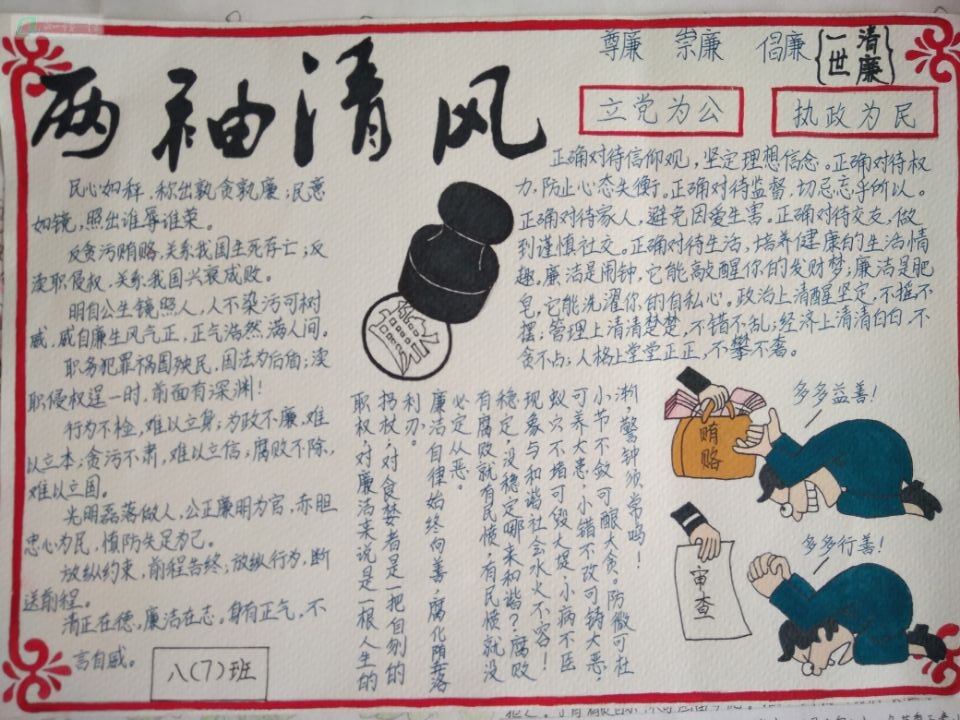 两袖清风
尊廉 崇廉 倡廉
清廉
一世
立党为公
执政为民
民心如秤，称出孰贪孰廉；民意
如镜，照出谁辱谁荣。
反贪污贿赂，关系我国生死存亡；反
渎职侵权，关系我国兴衰成败。
明自公生镜照人，人不染污可树
威，威自廉生风气正，正气浩然满人间。
职务犯罪祸国殃民，国法为后盾；渎
职侵权逞一时，前面有深渊！
行为不检，难以立身；为政不廉，难
以立本；贪污不肃，难以立信；腐败不除，
难以立国。
光明磊落做人，公正廉明为官，赤胆
忠心为民，慎防失足为己。
放纵约束，前程告终；放纵行为，断
送前程。
清正在德，廉洁在志。身有正气，不
言自威。
八(7)班
正确对待信仰观，坚定理想信念。正确对待权
力，防止心态失衡。正确对待监督，切忌忘乎所以。
正确对待家人，避免因爱生害。正确对待交友，做
到谨慎社交。正确对待生活，培养健康的生活情
趣。廉洁是闹钟，它能敲醒你的发财梦；廉洁是肥
皂，它能洗濯你的自私心。政治上清醒坚定，不摇不
摆；管理上清清楚楚，不错不乱；经济上清清白白，不
贪不占；人格上堂堂正正，不攀不奢。
渐，警钟须常鸣！
小节不敛可酿大贪。防微可杜
可养大患，小错不改可铸大恶，
蚁穴不堵可毁大堤，小病不医
现象与和谐社会水火不容！
稳定，没稳定哪来和谐？腐败
有腐败就有民愤，有民愤就没
必定从恶。
廉洁自律始终向善，腐化堕落
利刃。
职权，对廉洁来说是一根人生的
拐杖，对贪婪者是一把自刎的
贿赂
多多益善！
审查
多多行善！